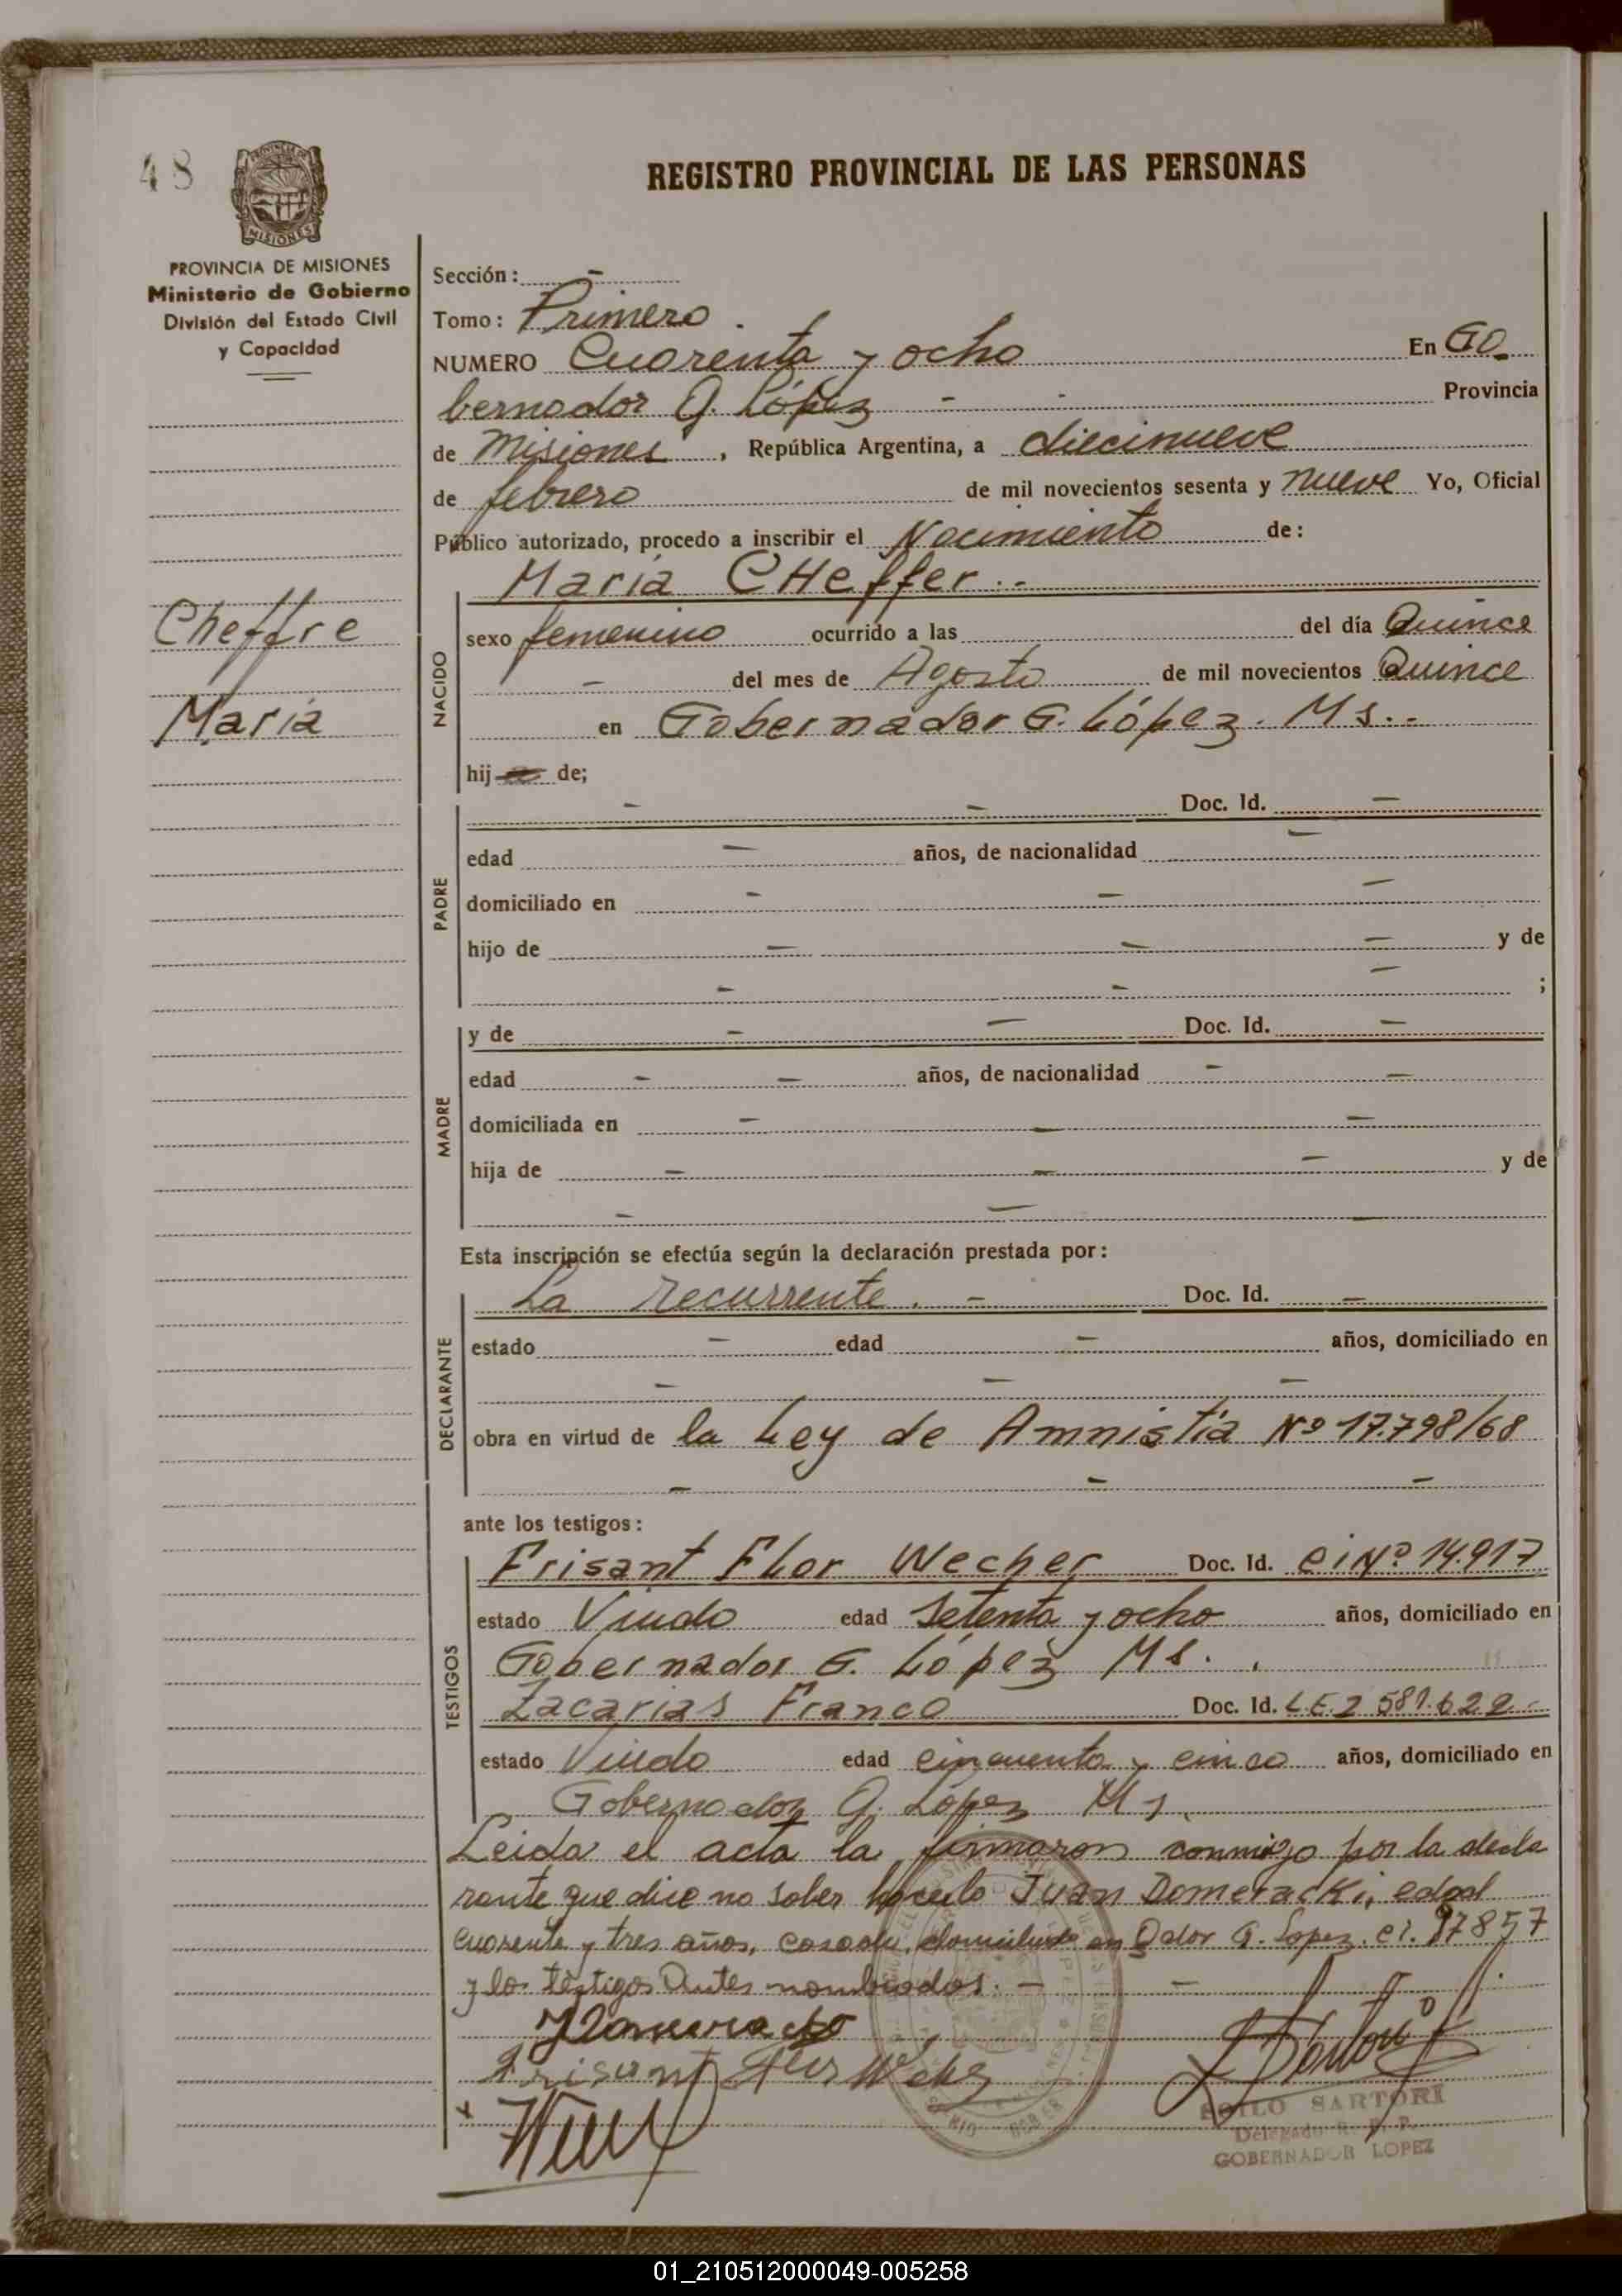 48
REGISTRO PROVINCIAL DE LAS PERSONAS
PROVINCIA DE MISIONES
Ministerio de Gobierno
División del Estado Civil
y Capacidad
Cheffre
María
Sección: -
Tomo: Primero.
NUMERO Cuarenta y ocho En Go-
bernador G. López - - Provincia
de Misiones, República Argentina, a diecinueve
de febrero de mil novecientos sesenta y nueve Yo, Oficial
Público autorizado, procedo a inscribir el Nacimiento de:
María CHeffer.-
NACIDO
sexo femenino ocurrido a las del día Quince
- del mes de Agosto de mil novecientos Quince
en Gobernador G. López. Ms.-
hij de;
PADRE
- - Doc. Id. -
edad - años, de nacionalidad -
domiciliado en - - -
hijo de - - - y de
- - - ;
MADRE
y de - - Doc. Id. -
edad - - años, de nacionalidad - -
domiciliada en - - -
hija de - - - y de
- - -
Esta inscripción se efectúa según la declaración prestada por:
DECLARANTE
La recurrente. - Doc. Id. -
estado - edad - años, domiciliado en
- - -
obra en virtud de la Ley de Amnistía Nº 17.798/68
- - -
ante los testigos:
TESTIGOS
Frisant Flor Wecher Doc. Id. CiNº 14.917
estado Viudo edad Setenta y ocho años, domiciliado en
Gobernador G. López Ms.
Zacarias Franco Doc. Id. L.E. 2 581.622-
estado Viudo edad cincuenta y cinco años, domiciliado en
Gobernador G. López Ms.
Leida el acta la firmaron conmigo por la decla
rante que dice no saber hacerlo Juan Domeracki, edad
cuarenta y tres años, casado, domiciliado en G. Lopez. ci. 97857
y los testigos Antes nombrados. - -
Frisant Flor
ZOILO SARTORI
Delegado R. P. P.
GOBERNADOR LOPEZ
01_210512000049-005258